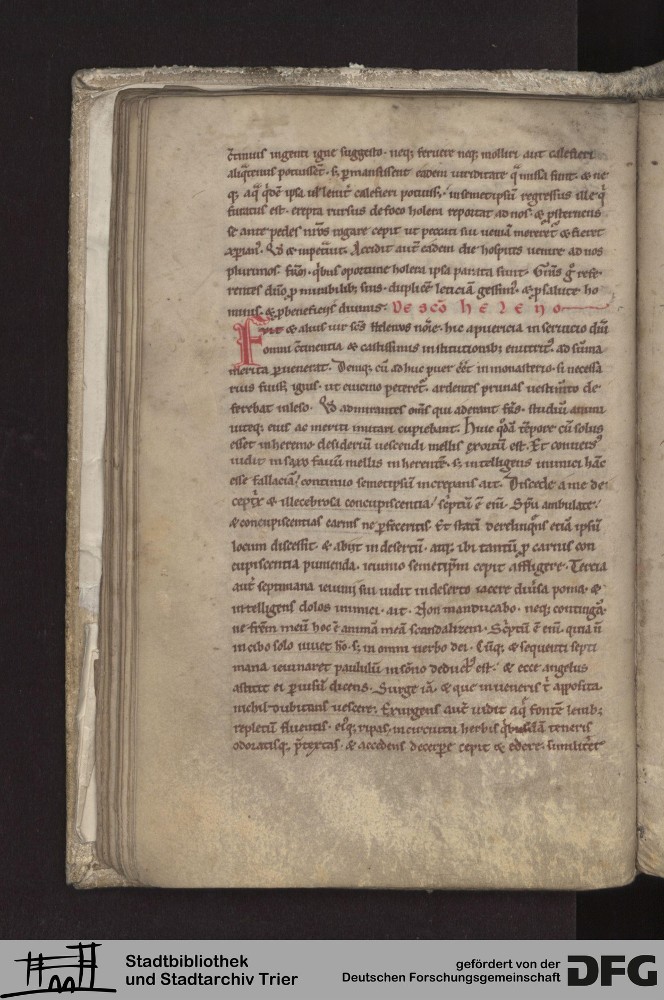 ctinuis ingenti igne suggesto. neq; feruere neq; molliri aut calefieri
aliqtinus potuisset. s; pmansissent eadem uiriditate q missa sunt. & ne
q; aq qde ipsa ul leuit calefieri potuiss;. insemetipsu regressus ille q
furatus est. erepta rursus de foco holera reportat ad nos. & psternens
se ante pedes nros rogare cepit ut peccati sui uenia mereret & fieret
xpian. Qd & inpetuit. Accidit aut eadem die hospites uenire ad nos
plurimos frm. qbus oportune holera ipsa parata sunt. Gras g refe
rentes dno p mirabilib; suis. duplice leticia gessim. & psalute ho
minis. & pbeneficijs diuinis. De sco heleno
Fuit & alius uir scs Helenus noie. hic apuericia in seruicio dni
omni ctinentia & castissimis institutionib; enutrit. ad suma
merita puenerat. Deniq; cu adhuc puer eet in monasterio. si necessa
rius fuiss; ignis. ut euicino peteret. ardentes prunas uestimto de
ferebat inleso. Qd admirantes oms qui aderant frs. studiu animi
uiteq; eius ac meriti imitari cupiebant. Huic qda tepore cu solus
esset inheremo desideriu uescendi mellis exortu est. Et conuers
uidit in saxo fauu mellis inherente. s; intelligens inimici hac
esse fallacia. continuo semetipsu increpans ait. Discede a me de
ceptx & illecebrosa concupiscentia. scptu e eni. Spu ambulate.
& concupiscentias carnis ne pfeceritis. Et stati derelinqns etia ipsu
locum discessit. & abijt in desertu. atq; ibi tantu p carnis con
cupiscentia punienda. ieiunio semetipm cepit affligere. Tercia
aut septimana ieiunij sui uidit in deserto iacere diuisa poma. &
intelligens dolos inimici. ait. Non manducabo. neq; continga.
ne frem meu hoc e anima mea scandalizem. Scptu e eni. quia n
incibo solo uiuet ho. s; in omni uerbo dei. Cuq; & sequenti septi
mana ieiunaret paululu in sono deduct est. & ecce angelus
astitit ei p uisu dicens. Surge ia. & que inueneris t apposita.
nichil dubitans uescere. Exurgens aut uidit aq fonte lenib;
repletu fluentis. eq; ripas in circuitu herbis qbusda teneris
odoratisq; ptextas. & accedens decerpe cepit & edere. similit
Stadtbibliothek
und Stadtarchiv Trier
gefördert von der
Deutschen Forschungsgemeinschaft
DFG